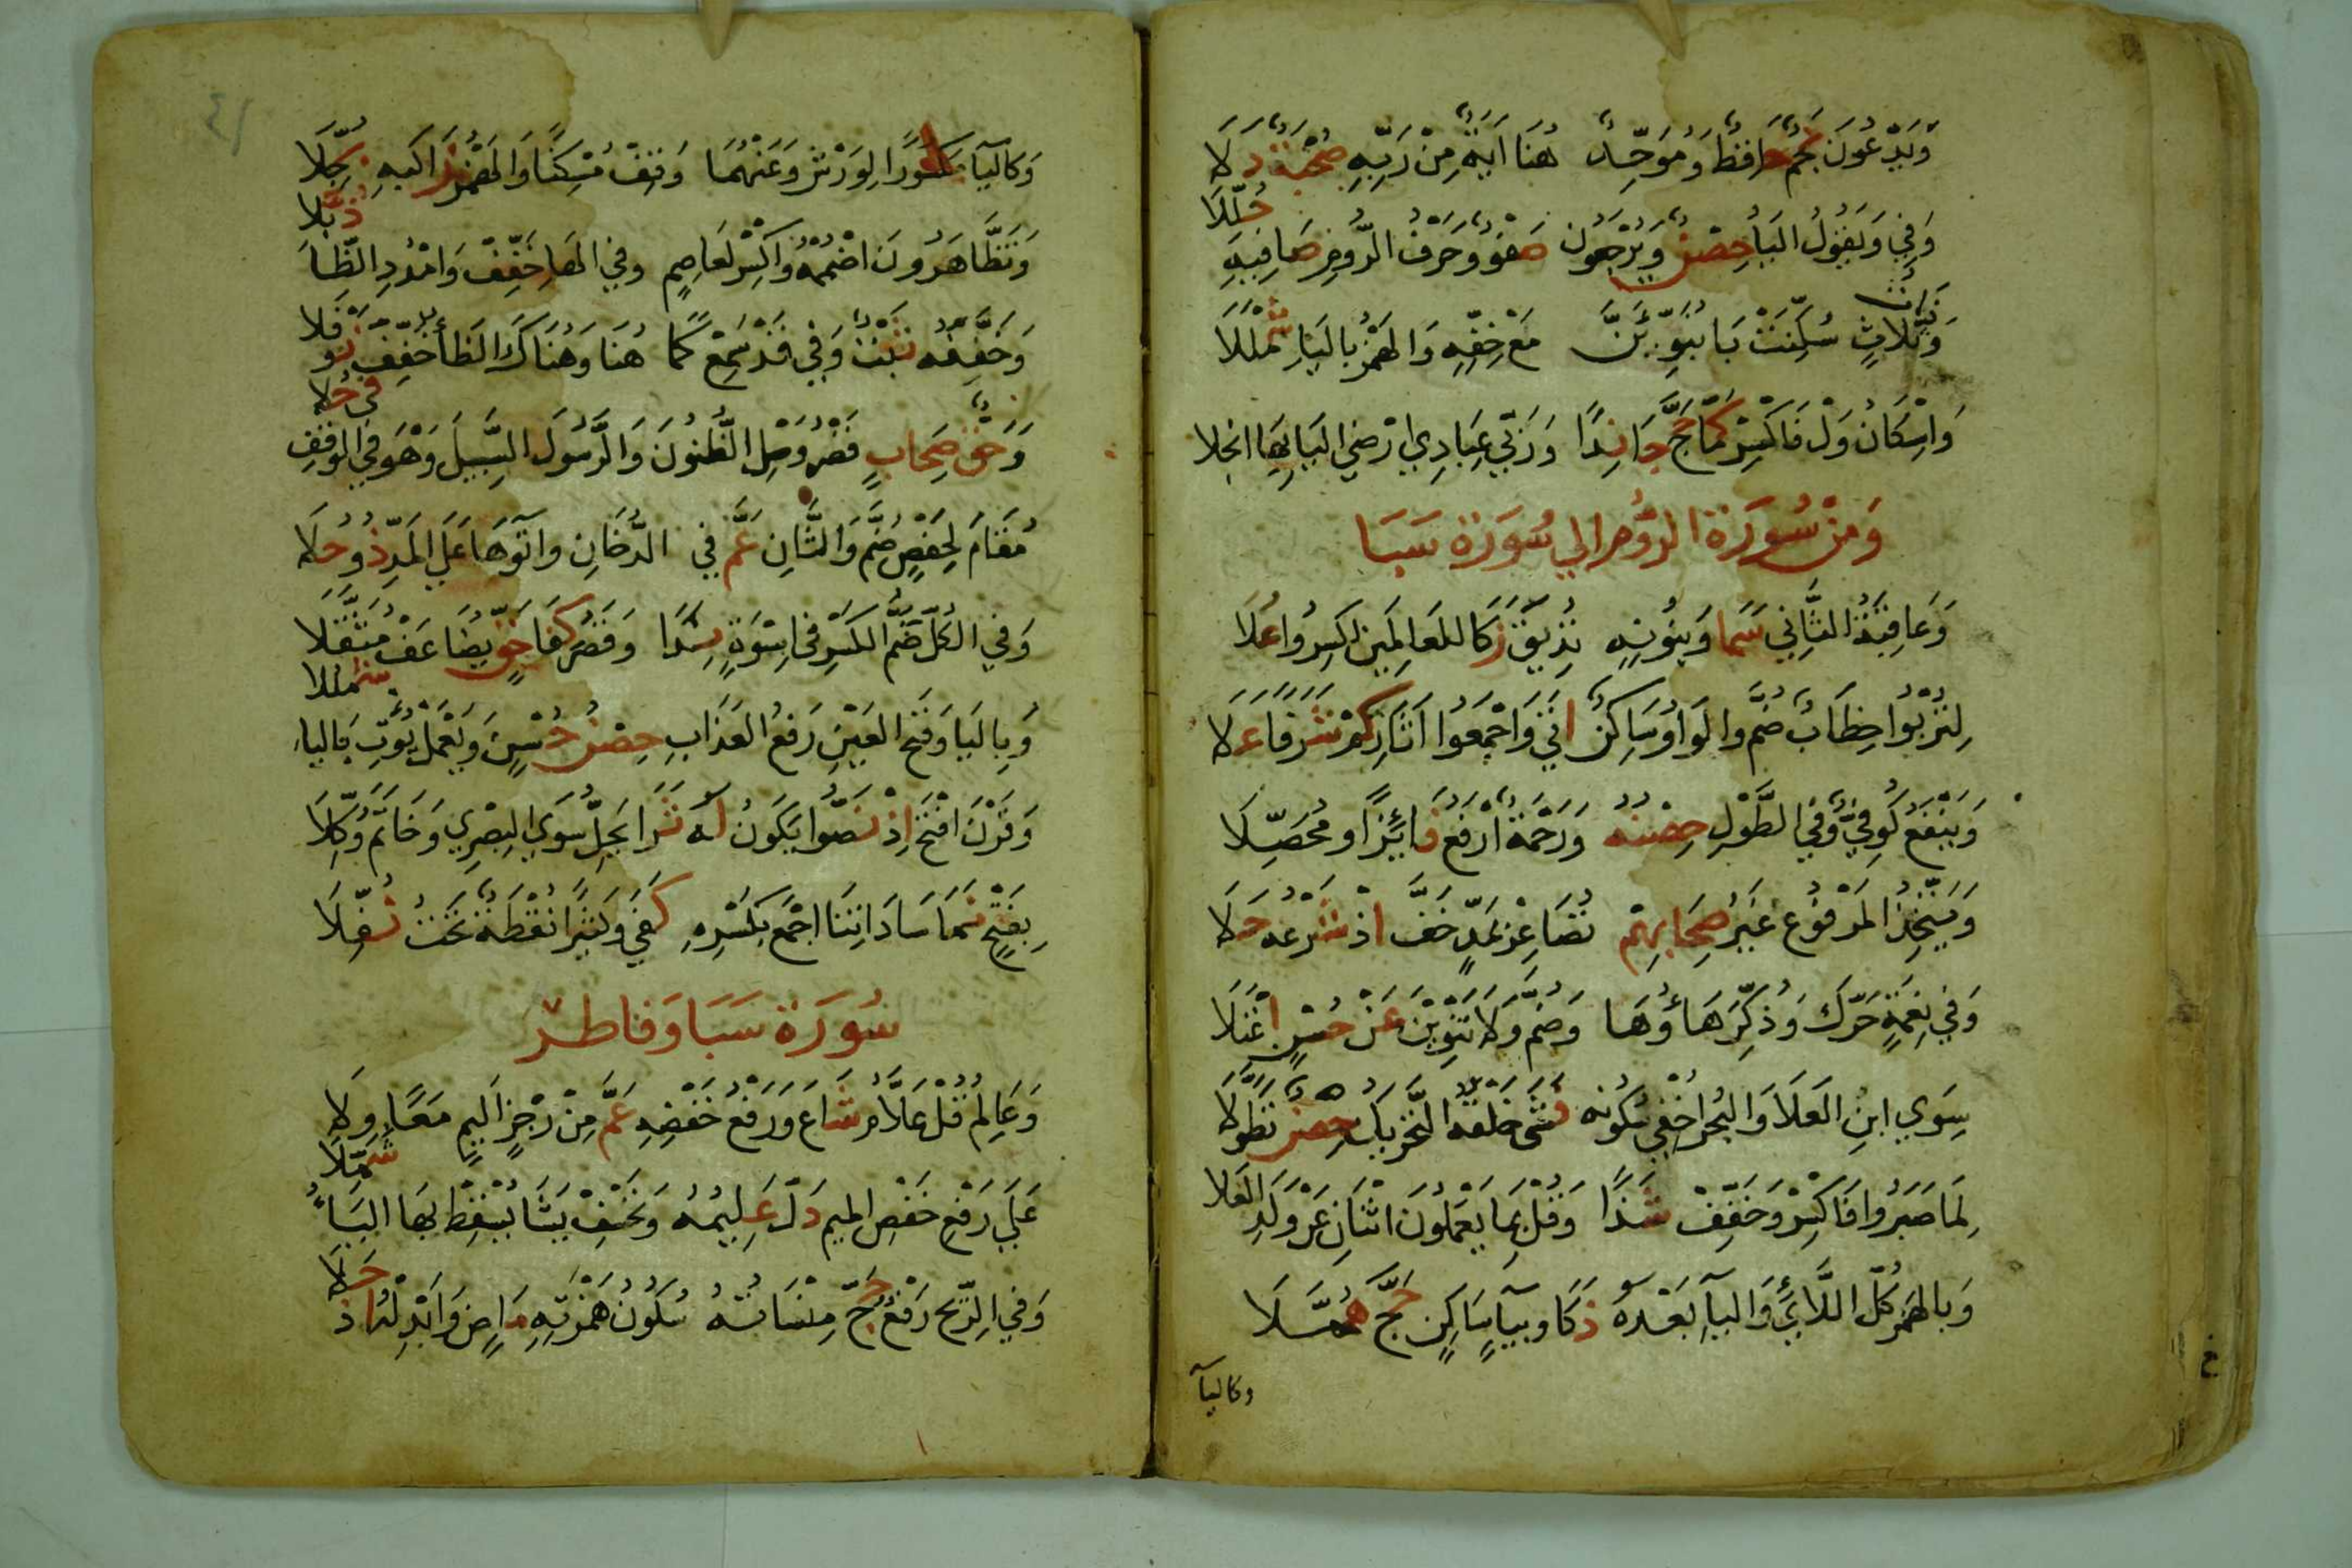 وَيَدْعُونَ نَجْمٌ حَافِظٌ وَمُوَحِّدٌ هُنَا آيَةٌ مِنْ رَبِّهِ صُحْبَةٌ دَلَا
وَفِي وَيَقُولُ الْيَاءُ حِصْنٌ وَيُرْجَعُونَ صَفْوٌ وَحَرْفُ الرُّومِ صَافِيهِ حُلِّلَا
وَذَاتُ ثَلَاثٍ سُكِّنَتْ بَا نُبَوِّئَنَّ مَعْ خِفِّهِ وَالْهَمْزُ بِالْيَاءِ شَمْلَلَا
وَإِسْكَانُ وَلْ فَاكْسِرْ كَمَا حَجَّ جَا نِدًا وَرَبِّي عِبَادِي أَرْضِيَ الْيَا بِهَا انْجَلَا
وَمِنْ سُورَةِ الرُّومِ إِلَى سُورَةِ سَبَا
وَعَاقِبَةُ الثَّانِي سَمَا وَبِنُونِهِ نُذِيقُ زَكَا لِلْعَالَمِينَ اكْسِرُوا عُلَا
لِتُرْبُوا خِطَابٌ ضُمَّ وَالْوَاوُ سَاكِنٌ أَتَى وَاجْمَعُوا آثَارِ كَمْ شَرَفًا عَلَا
وَيَنْفَعُ كُوفِيٌّ وَفِي الطَّوْلِ حِصْنُهُ وَرَحْمَةً ارْفَعْ فَائِزًا وَمُحَصِّلَا
وَيَتَّخِذُ الْمَرْفُوعُ غَيْرُ صِحَابِهِمْ تُصَاعِرْ بِمَدٍّ خَفَّ إِذْ شَرْعُهُ حَلَا
وَفِي نِعْمَةٍ حَرِّكْ وَذُكِّرَ هَاؤُهَا وَضُمَّ وَلَا تَنْوِينَ عَنْ حُسْنٍ اعْتَلَا
سِوَى ابْنِ الْعَلَا وَالْبَحْرُ أُخْفِي سُكُونُهُ فَشَى خَلْقَهُ التَّحْرِيكُ حِصْنٌ تَطَوَّلَا
لِمَا صَبَرُوا فَاكْسِرْ وَخَفِّفْ شَذًا وَقُلْ بِمَا يَعْمَلُونَ اثْنَانِ عَنْ وَلَدِ الْعَلَا
وَبِالْهَمْزِ كُلُّ اللَّائِي وَالْيَاءِ بَعْدَهُ ذَكَا وَبِيَاءٍ سَاكِنٍ حَجَّ هُمَّلَا
وكاليآ
وَكَالْيَآ مَكْسُورًا لِوَرْشٍ وَعَنْهُمَا وَقِفْ مُسْكِنًا وَالْهَمْزُ زَاكِيهِ بُجِّلَا
وَتَظَّاهَرُونَ اضْمُمْهُ وَاكْسِرْ لِعَاصِمٍ وَفِي الْهَاءِ خَفِّفْ وَامْدُدِ الظَّاءَ ذُبَّلَا
وَخَفَّفَهُ ثَبْتٌ وَفِي قَدْ سَمِعْ كَمَا هُنَا وَهُنَاكَ الظَّاءُ خُفِّفَ نَوْفَلَا
وَحَقُّ صِحَابٍ قَصْرُ وَصْلِ الظُّنُونَ وَالرَّسُولَ السَّبِيلَ وَهْوَ فِي الْوَقْفِ فِي حُلَا
مُقَامَ لِحَفْصٍ ضُمَّ وَالثَّانِ عَمَّ فِي الدُّخَانِ وَآتَوْهَا عَلَى الْمَدِّ ذُو حُلَا
وَفِي الْكُلِّ ضَمُّ الْكَسْرِ فِي إِسْوَةٍ نَدًا وَقَصْرُ كِفَا حَقٍّ يُضَاعَفْ مُثَقَّلَا
وَبِالْيَا وَفَتْحِ الْعَيْنِ رَفْعُ الْعَذَابِ حِصْنُ حُسْنٍ وَيَعْمَلْ يُؤْتِ بِالْيَاءِ شَمْلَلَا
وَقَرْنَ افْتَحِ اذْ نَصُّوا يَكُونَ لَهُ ثَرَا يَحِلُّ سِوَى الْبِصْرِي وَخَاتَمَ وُكِّلَا
بِفَتْحٍ نَمَا سَادَاتِنَا اجْمَعْ بِكَسْرِهِ كَفَى وَكَثِيرًا نُقْطَةٌ تَحْتُ نُفِّلَا
سُورَةُ سَبَا وَفَاطِرْ
وَعَالِمِ قُلْ عَلَّامِ شَاعَ وَرَفْعُ خَفْضِهِ عَمَّ مِنْ رِجْزٍ أَلِيمٍ مَعًا وِلَا
عَلَى رَفْعِ خَفْضِ الْمِيمِ دَلَّ عَلِيمُهُ وَنَخْسِفْ نَشَا نُسْقِطْ بِهَا الْيَاءُ شُمِّلَا
وَفِي الرِّيحَ رَفْعٌ حَجَّ مِنْسَأَتَهُ سُكُونُ هَمْزَتِهِ مَاضٍ وَأَبْدِلْهُ إِذْ حَلَا